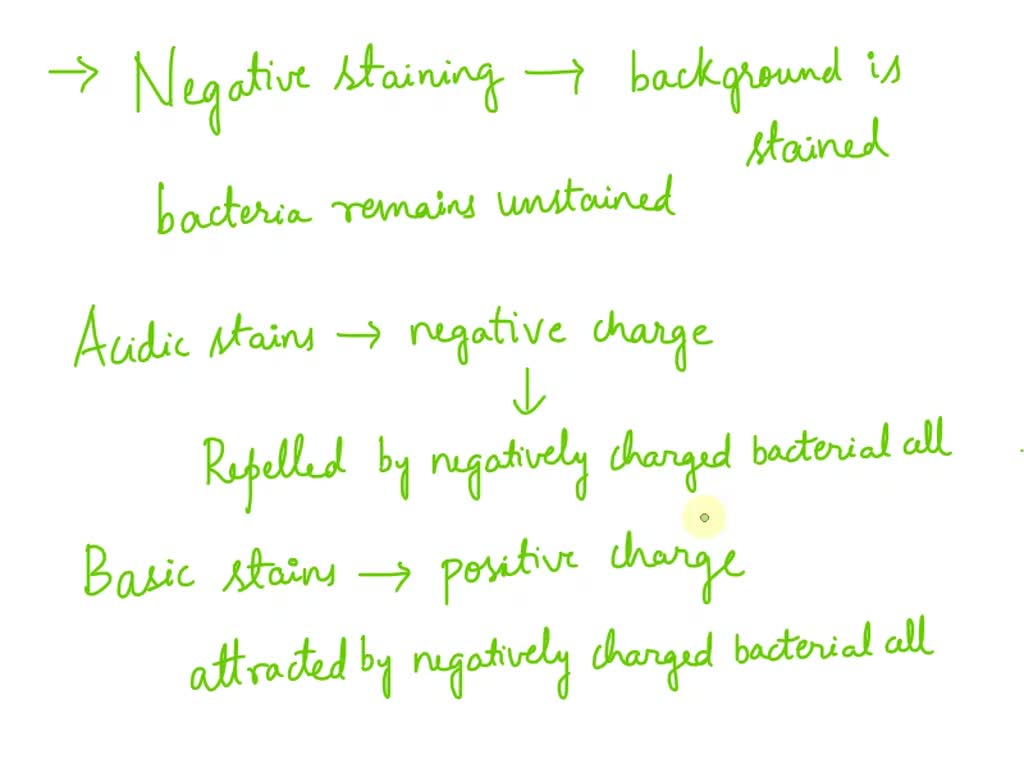 → Negative staining → background is
stained
bacteria remains unstained
Acidic stains → negative charge
↓
Repelled by negatively charged bacterial cell
Basic stains → positive charge
attracted by negatively charged bacterial cell